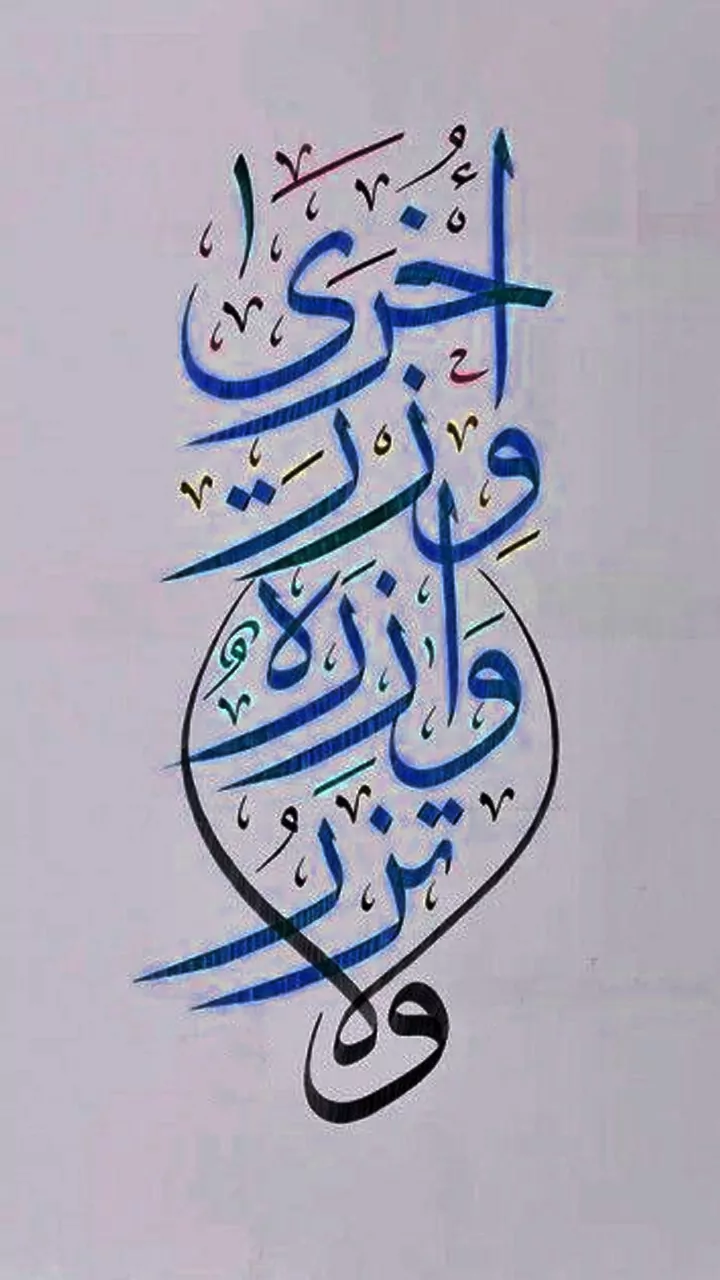 ولا
تَزِرُ
وَازِرَةٌ
وِزْرَ
أُخْرَىٰ